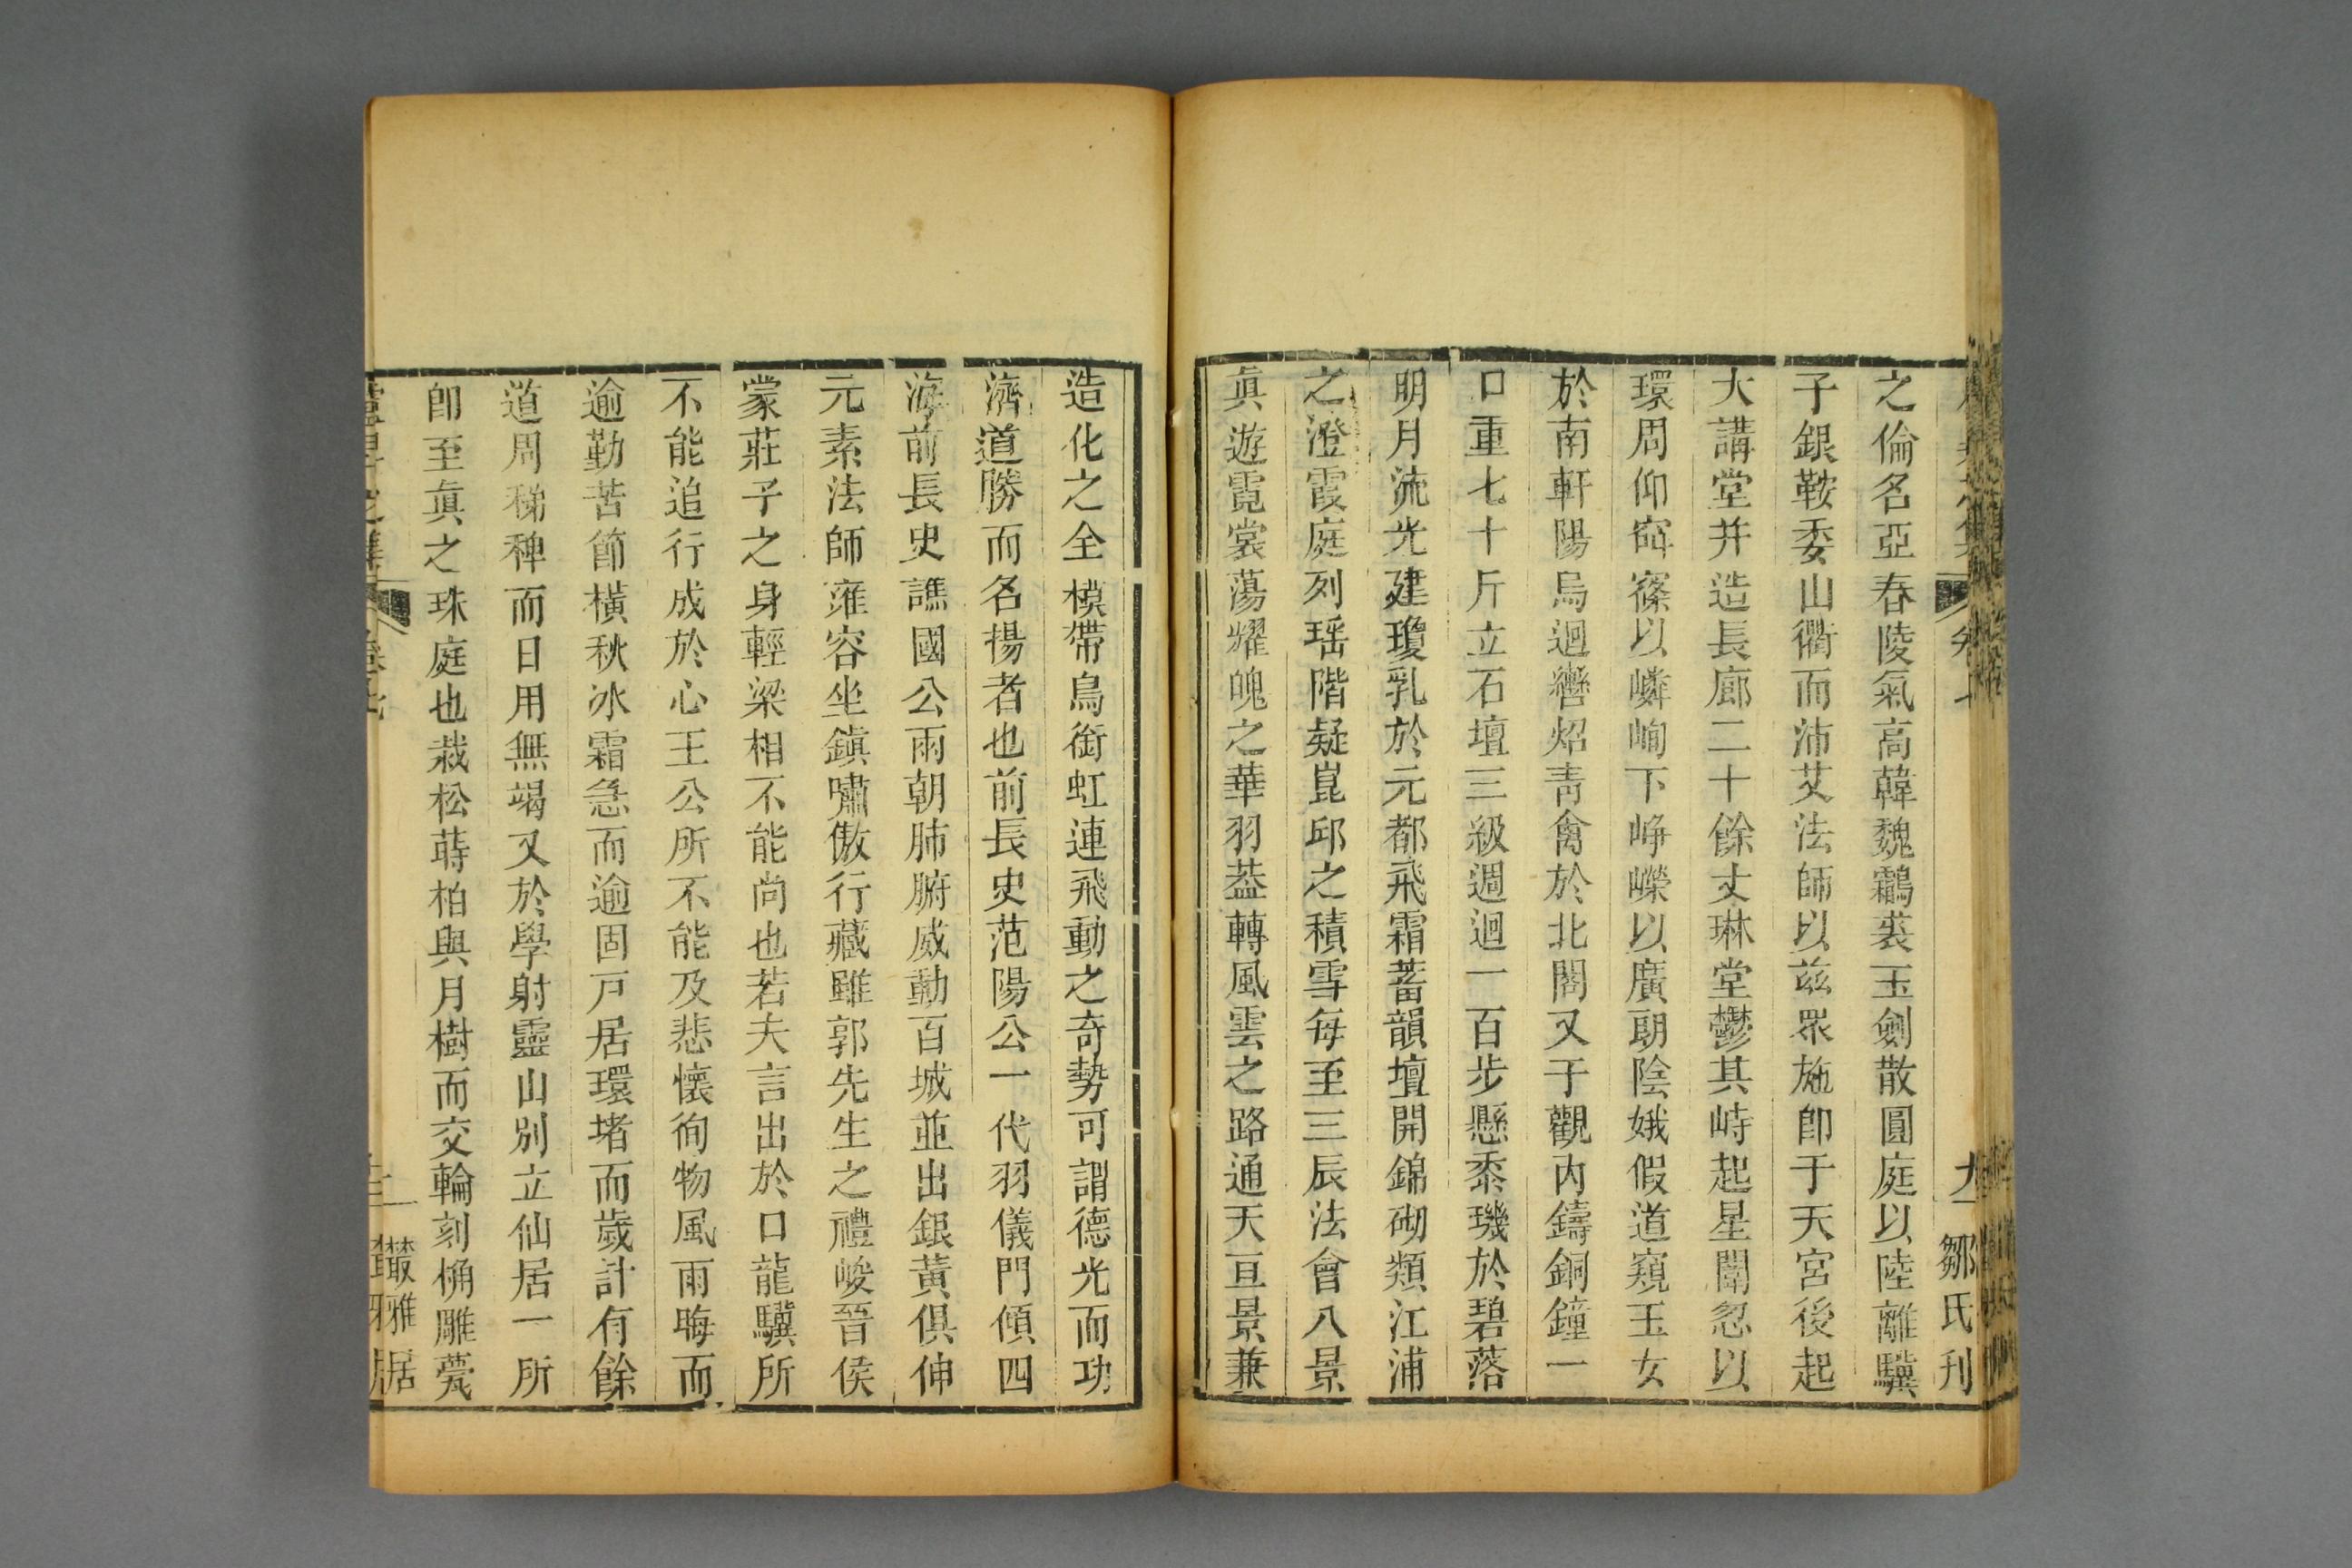 九
鄒氏刊
之倫名亞春陵氣高韓魏鸘裘玉劍散圓庭以陸離驥
子銀鞍委山衢而沛艾法師以兹眾施卽于天宮後起
大講堂并造長廊二十餘丈琳堂鬱其峙起星闈忽以
環周仰窋窱以嶙峋下崢嶸以廣朗陰娥假道窺玉女
於南軒陽烏迴轡炤青禽於北閣又于觀內鑄銅鐘一
口重七十斤立石壇三級週迴一百步懸黍璣於碧落
明月流光建瓊乳於元都飛霜蓄韻壇開錦砌類江浦
之澄霞庭列瑶階疑崑邱之積雪每至三辰法會八景
眞遊霓裳蕩耀魄之華羽葢轉風雲之路通天亘景兼
造化之全模帶鳥銜虹連飛動之奇勢可謂德光而功
濟道勝而名揚者也前長史范陽公一代羽儀門傾四
海前長史譙國公兩朝肺腑威動百城並出銀黃俱伸
元素法師雍容坐鎮嘯傲行藏雖郭先生之禮峻晉侯
蒙莊子之身輕梁相不能尚也若夫言出於口龍驥所
不能追行成於心王公所不能及悲懷徇物風雨晦而
逾勤苦節橫秋冰霜急而逾固戸居環堵而歲計有餘
道周稊稗而日用無竭又於學射靈山別立仙居一所
卽至眞之珠庭也栽松蒔柏與月樹而交輪刻桷雕甍
叢雅居